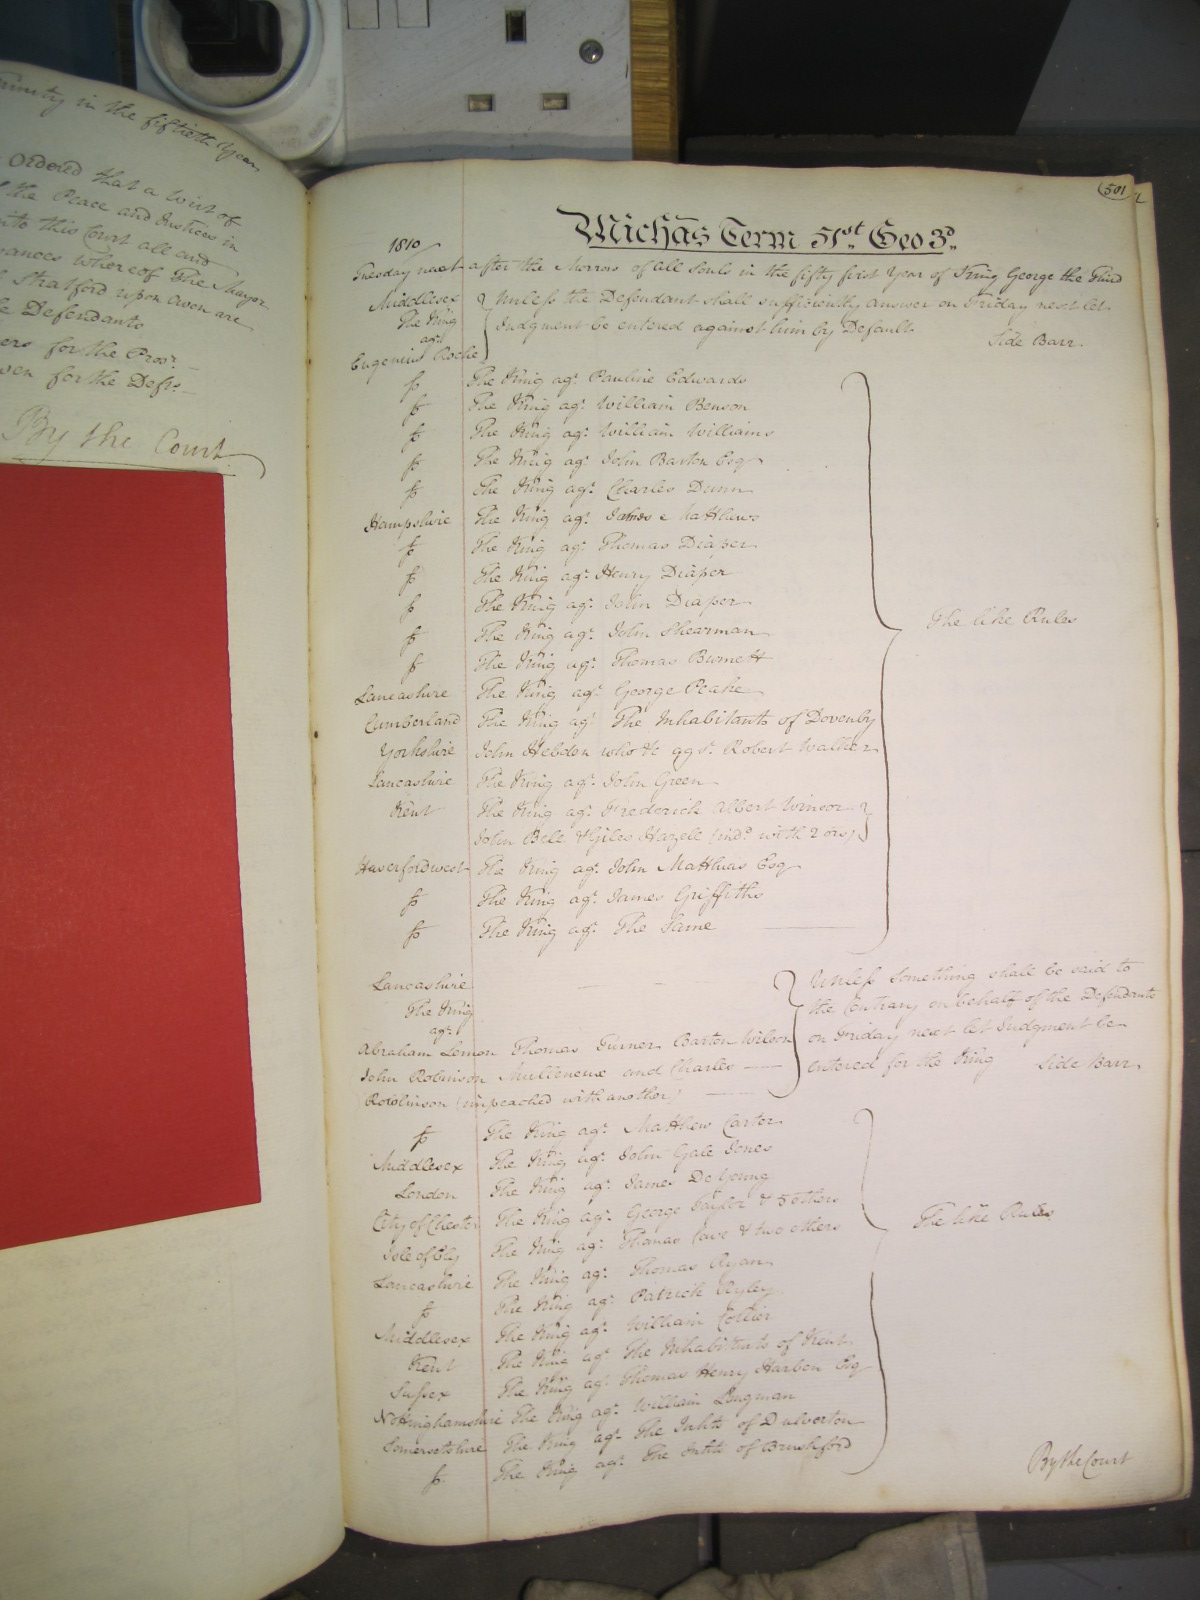 in the fiftieth Year
Ordered that a Writ of
the Peace and Justices in
into this Court all and
whereof The Mayor
Stratford upon Avon are
Defendants
for the Pros.r
for the Defts.
By the Court
501
Michãs Term 51st. Geo 3d.
1810
Tuesday next after the Morrow of All Souls in the fifty first Year of King George the Third
Middlesex
The King
agt.
Eugenius Roche
Unless the Defendant shall sufficiently answer on Friday next let
Judgment be entered against him by Default.
Side Barr.
The King agt. Pauline Edwards
The King agt. William Benson
The King agt. William Williams
The King agt. John Barton Esq
The King agt. Charles Dunn
Hampshire The King agt. James Matthews
The King agt. Thomas Diaper
The King agt. Henry Diaper
The King agt. John Diaper
The King agt. John Shearman
The King agt. Thomas Burnett
Lancashire The King agt. George Peake
Cumberland The King agt. The Inhabitants of Dovenby
Yorkshire John Hebden who &c agst. Robert Walker
Lancashire The King agt. John Green
Kent The King agt. Frederick Albert Winsor
John Bell & Giles Hazell (indd. with 2 ors)
Haverfordwest The King agt. John Matthias Esq
The King agt. James Griffiths
The King agt. The Same
The like Rules
Lancashire
The King
agt.
Abraham Lemon Thomas Turner Barton Wilson
John Robinson and Charles
Robinson (impeached with another)
Unless something shall be said to
the Contrary on behalf of the Defendants
on Friday next let Judgment be
entered for the King Side Barr.
The King agt. Matthew Carter
Middlesex The King agt. John Gale Jones
London The King agt. James De Yonng
City of Chester The King agt. George Taylor & 5 others
Isle of Ely The King agt. Thomas Cave & two others
Lancashire The King agt. Thomas Ryan
The King agt. Patrick Ryley
Middlesex The King agt. William Collier
Kent The King agt. The Inhabitants of Kent
Sussex The King agt. Thomas Henry Harben Esq
Nottinghamshire The King agt. William
Somersetshire The King agt. The Inhts of Dulverton
The King agt. The Inhts of Brushford
The like Rules
By the Court